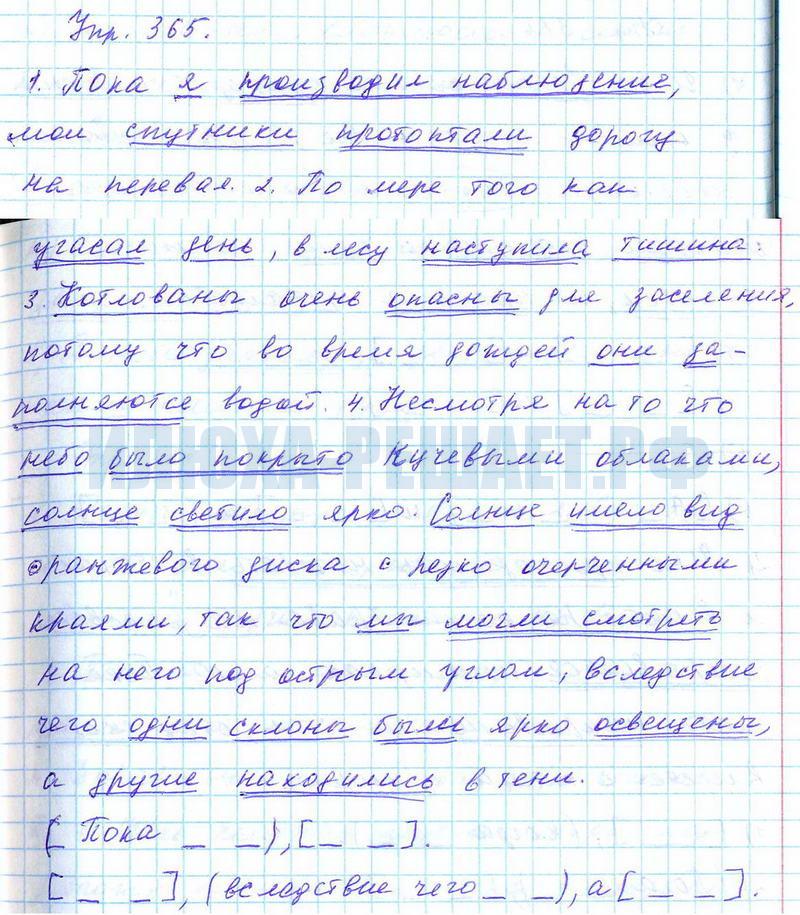 Упр. 365.
1. Пока я производил наблюдение,
мои спутники протоптали дорогу
на перевал. 2. По мере того как
угасал день, в лесу наступила тишина.
3. Котлованы очень опасны для заселения,
потому что во время дождей они за-
полняются водой. 4. Несмотря на то что
небо было покрыто кучевыми облаками,
солнце светило ярко. Солнце имело вид
оранжевого диска с резко очерченными
краями, так что мы могли смотреть
на него под острым углом, вследствие
чего одни склоны были ярко освещены,
а другие находились в тени.
[Пока _ _), [_ _].
[_ _], (вследствие чего _ _), а [_ _].
ИЛЮХА-РЕШАЕТ.РФ